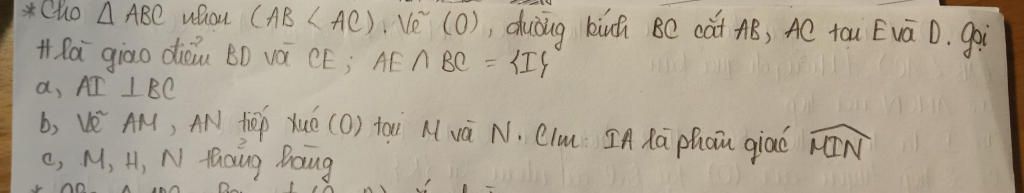 * Cho Δ ABC nhọn (AB < AC). Vẽ (O), đường kính BC cắt AB, AC tại E và D. Gọi
H là giao điểm BD và CE ; AE ∩ BC = {I}
a, AI ⊥ BC
b, Vẽ AM, AN tiếp xúc (O) tại M và N. C/m: IA là phân giác \widehat{MIN}
c, M, H, N thẳng hàng